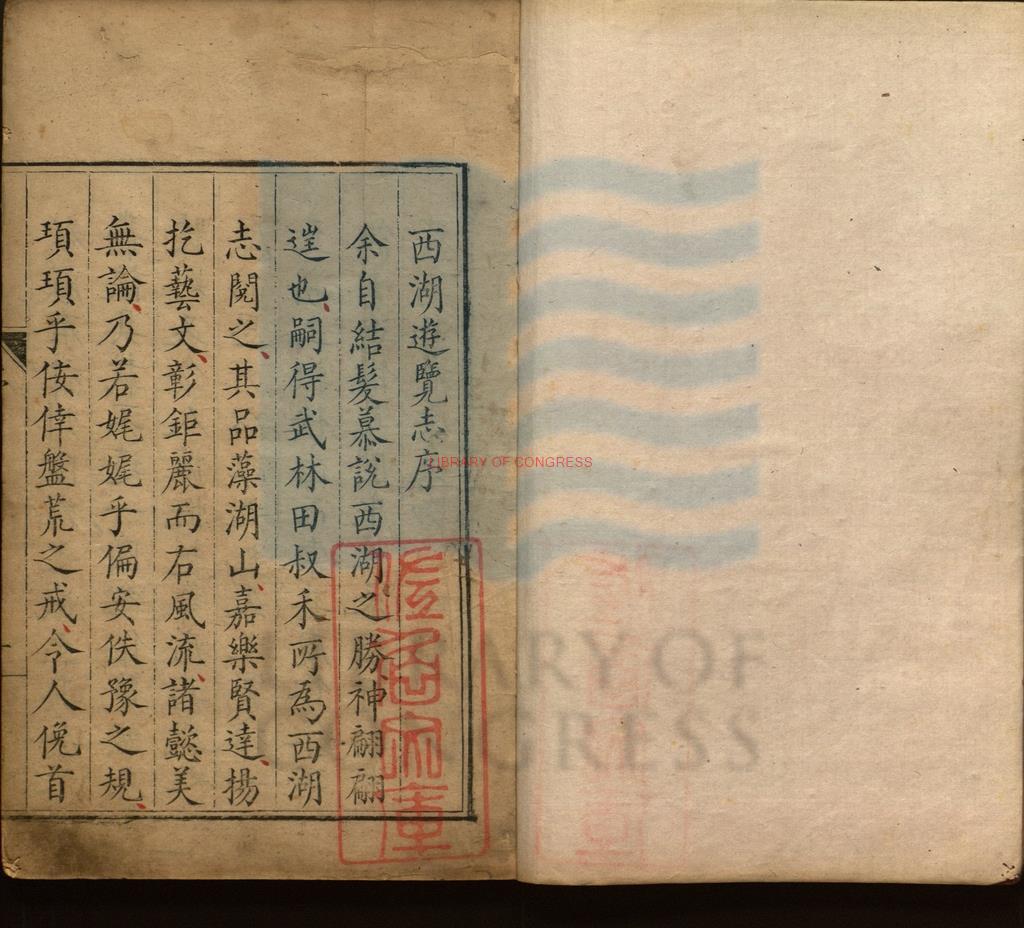 西湖遊覽志序
余自結髮慕說西湖之勝神翩翩
逞也嗣得武林田叔禾所為西湖
志閱之其品藻湖山嘉樂賢達揚
扢藝文彰鉅麗而右風流諸懿美
無論乃若娓娓乎偏安佚豫之規
頊頊乎佞倖盤荒之戒令人俛首
LIBRARY OF CONGRESS
LIBRARY OF
CONGRESS